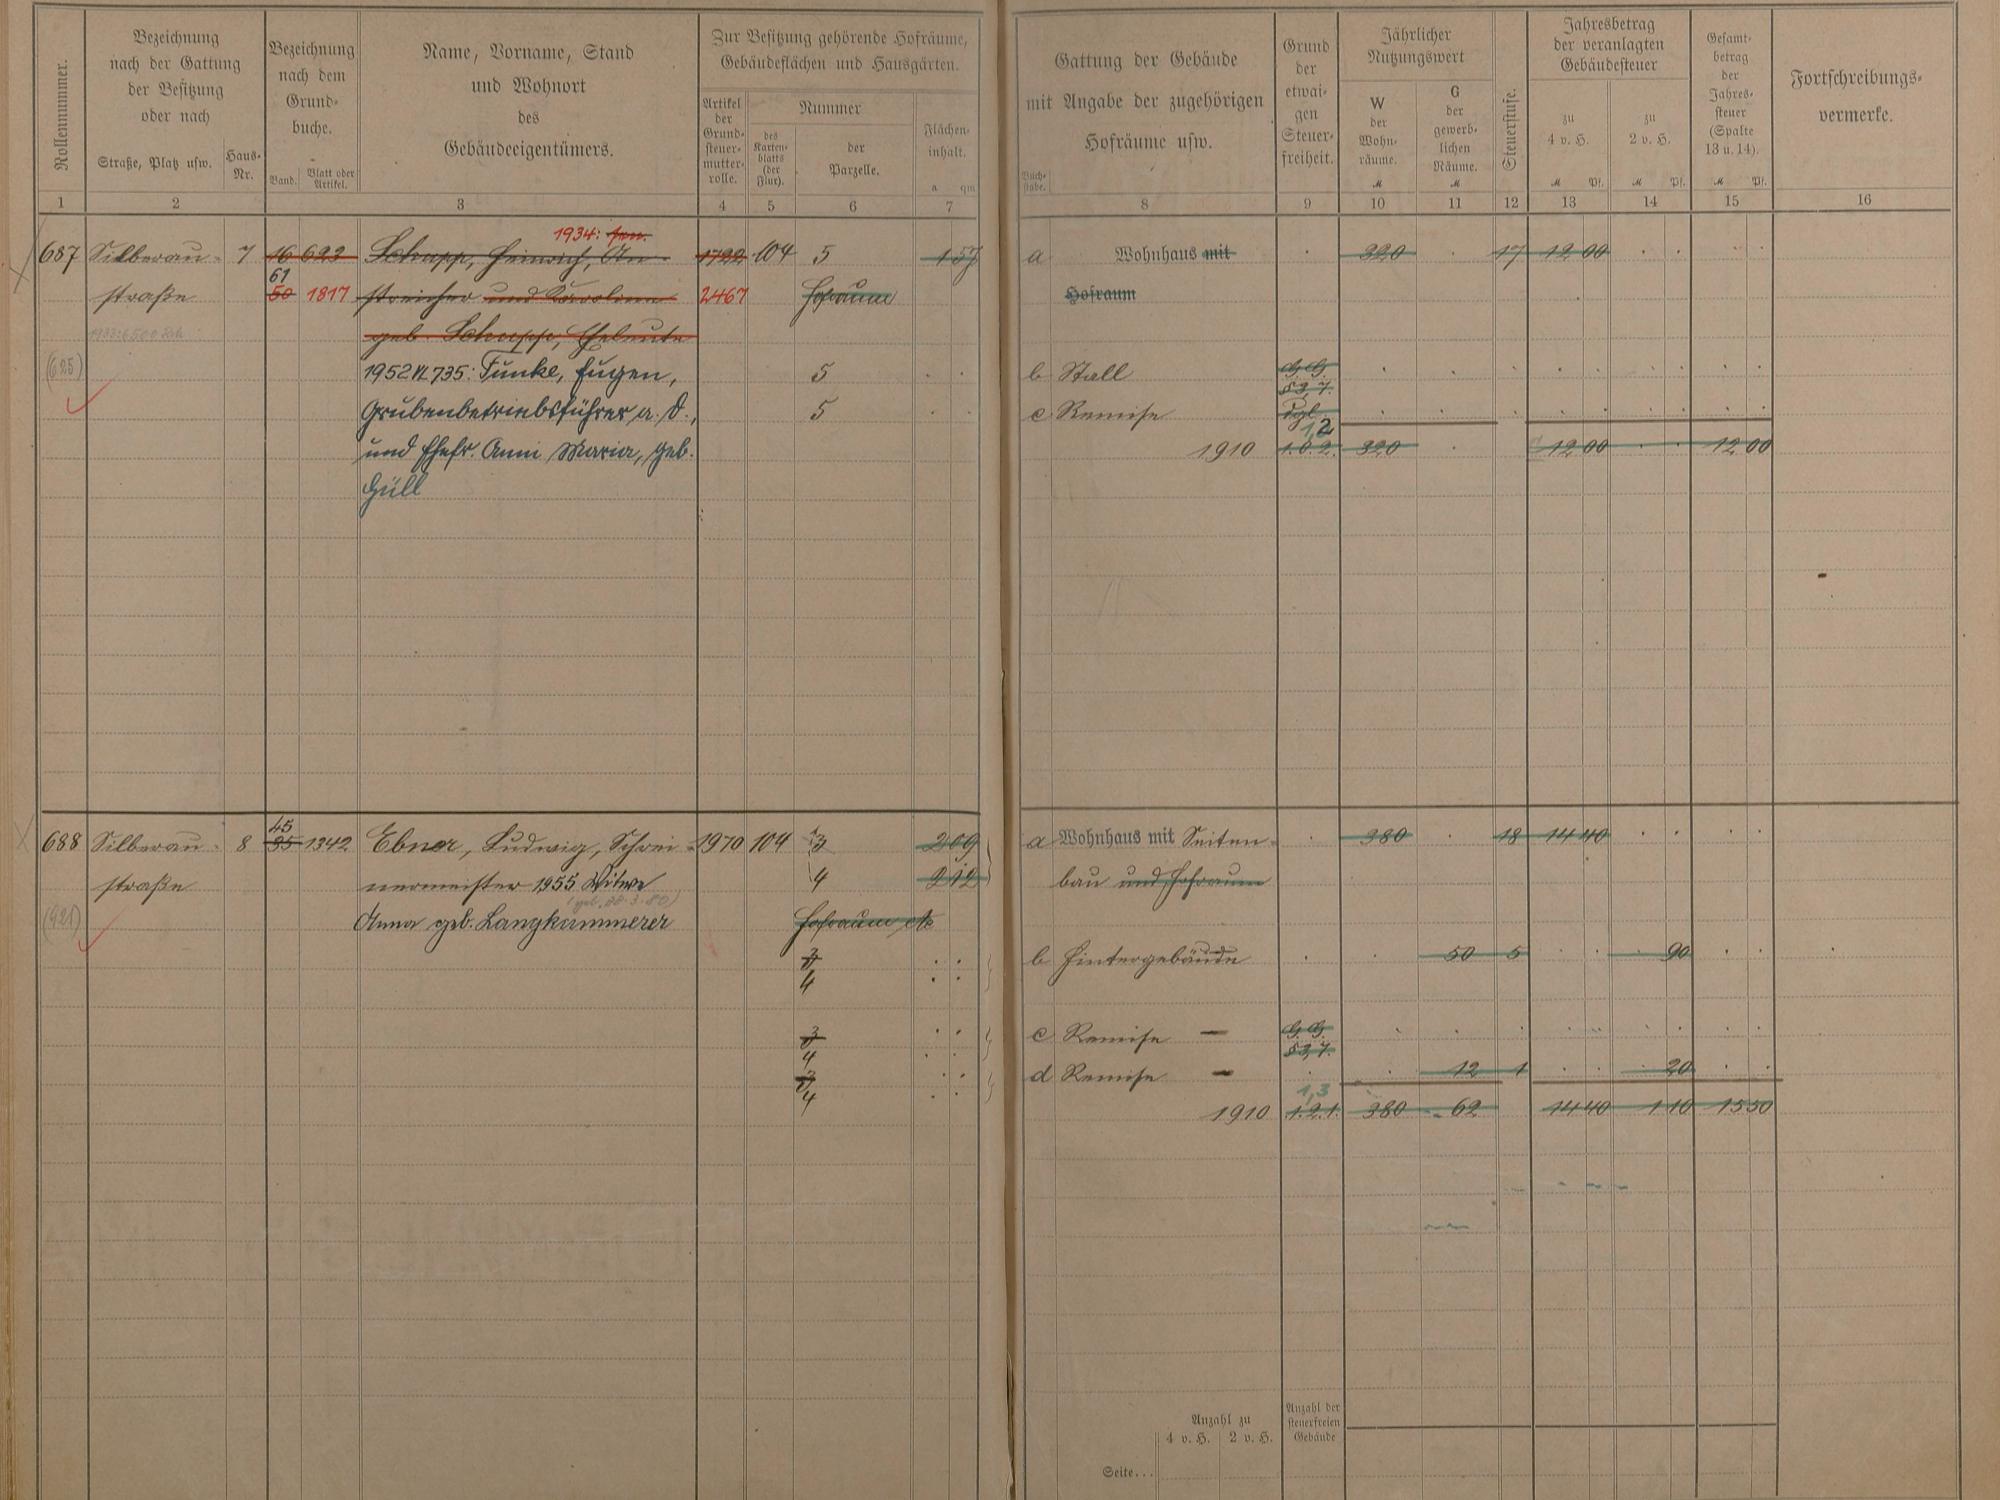 Rollennummer.
Bezeichnung
nach der Gattung
der Besitzung
oder nach
Straße, Platz usw.
Haus-
Nr.
Bezeichnung
nach dem
Grund-
buche.
Band.
Blatt oder
Artikel.
Name, Vorname, Stand
und Wohnort
des
Gebäudeeigentümers.
Zur Besitzung gehörende Hofräume,
Gebäudeflächen und Hausgärten.
Artikel
der
Grund-
steuer-
mutter-
rolle.
Nummer
des
Karten-
blatts
(der
Flur).
der
Parzelle.
Flächen-
inhalt.
a qm
1 2 3 4 5 6 7
687 Silberau- 7 16 623 Schupp, Heinrich, An- 1722 104 5 1 57
1934:
61
straße 50 1817 streicher und Karoline 2467 Hofraum
geb. Schupp, Eheleute
(625) 1952 VL 735: Funke, Eugen, 5
Grubenbetriebsführer a. D., 5
und Ehefr. Anni Maria, geb.
Güll
45
688 Silberau- 8 35 1342 Ebner, Ludwig, Schrei- 1970 104 3 2 09
straße nermeister 1955 Witwe 4 2 12
(geb. 28.3.80)
(921) Anna geb. Langkammerer Hofraum etc
3
4
3
4
3
4
Gattung der Gebäude
mit Angabe der zugehörigen
Hofräume usw.
Buch-
stabe.
Grund
der
etwai-
gen
Steuer-
freiheit.
Jährlicher
Nutzungswert
W
der
Wohn-
räume.
M
G
der
gewerb-
lichen
Räume.
M
Steuerstufe.
Jahresbetrag
der veranlagten
Gebäudesteuer
zu
4 v. H.
M Pf.
zu
2 v. H.
M Pf.
Gesamt-
betrag
der
Jahres-
steuer
(Spalte
13 u. 14).
M Pf.
Fortschreibungs-
vermerke.
8 9 10 11 12 13 14 15 16
a Wohnhaus mit 320 17 12 00
Hofraum
b Stall G.G.
§ 3, 7.
c Remise dgl.
1,2
1910 1.0.2. 320 12 00 12 00
a Wohnhaus mit Seiten- 380 18 14 40
bau und Hofraum
b Hintergebäude 50 5 90
c Remise G.G.
§ 3, 7.
d Remise 12 1 20
1,3
1910 1.2.1. 380 62 14 40 1 10 15 50
Anzahl zu
4 v. H. 2 v. H.
Anzahl der
steuerfreien
Gebäude
Seite...